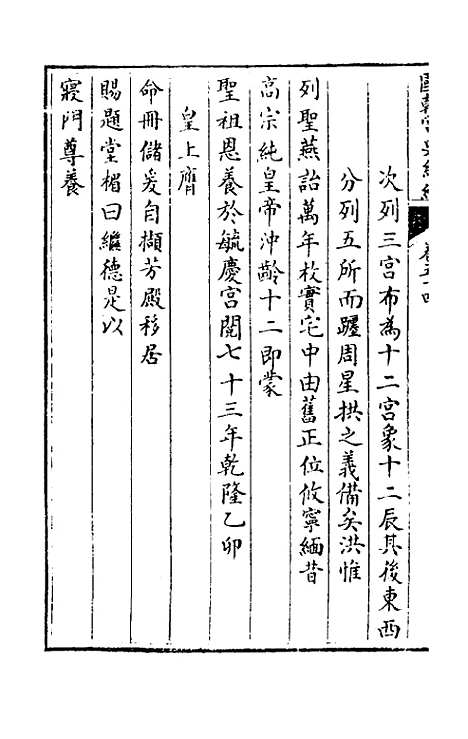 國朝宮史續編 卷五十四
次列三宮布為十二宮象十二辰其後東西
分列五所而躔周星拱之義備矣洪惟
列聖燕詒萬年攸實宅中由舊正位攸寧緬昔
高宗純皇帝沖齡十二即蒙
聖祖恩養於毓慶宮閱七十三年乾隆乙卯
皇上膺
命冊儲爰自擷芳殿移居
賜題堂楣曰繼德是以
寢門尊養